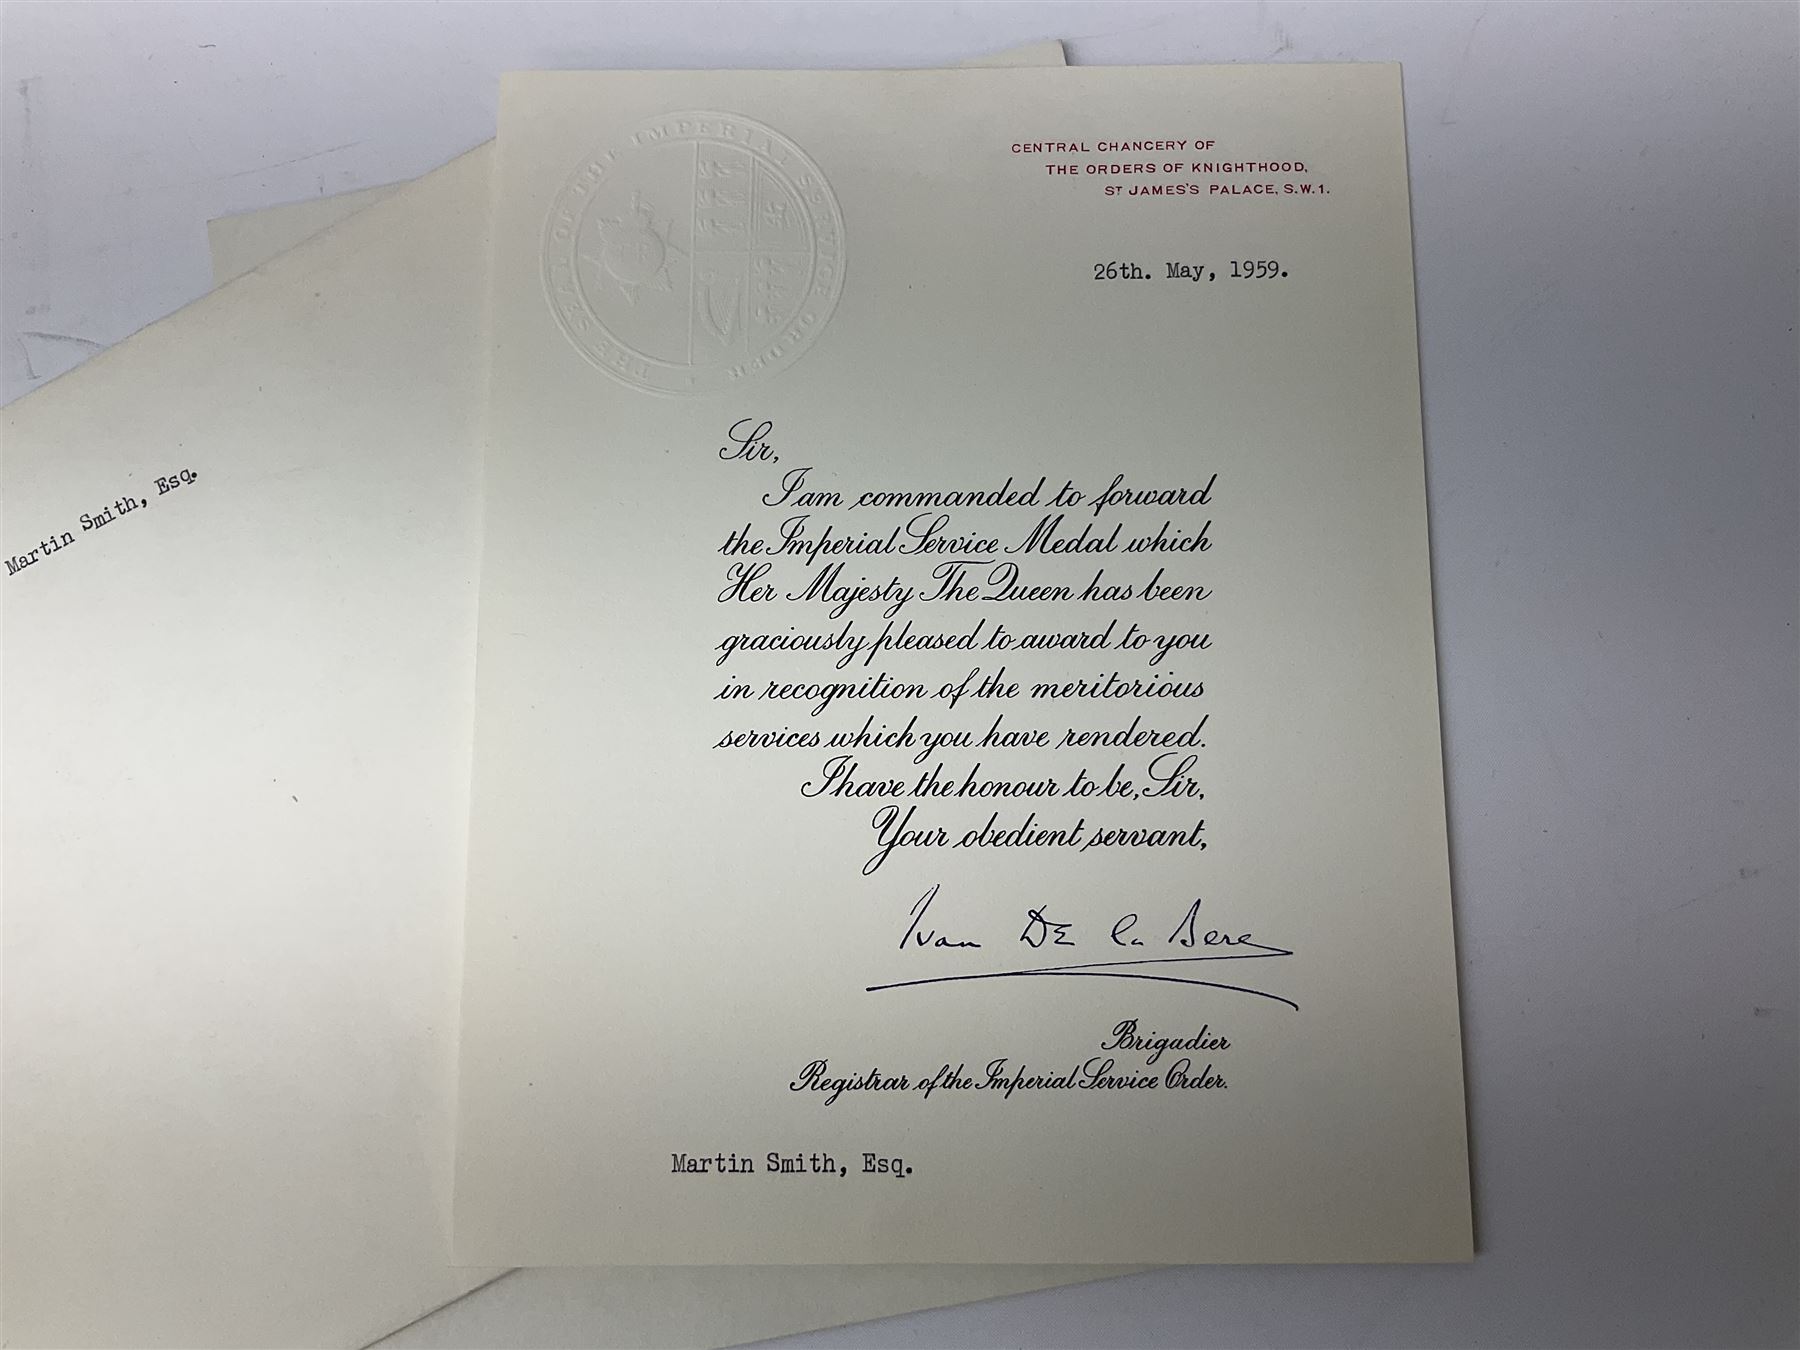 THE SEAL OF THE IMPERIAL SERVICE ORDER
CENTRAL CHANCERY OF
THE ORDERS OF KNIGHTHOOD,
ST JAMES'S PALACE, S.W.1.
26th. May, 1959.
Sir,
I am commanded to forward
the Imperial Service Medal which
Her Majesty The Queen has been
graciously pleased to award to you
in recognition of the meritorious
services which you have rendered.
I have the honour to be, Sir,
Your obedient servant,
Ivan De la Bere
Brigadier
Registrar of the Imperial Service Order.
Martin Smith, Esq.
Martin Smith, Esq.